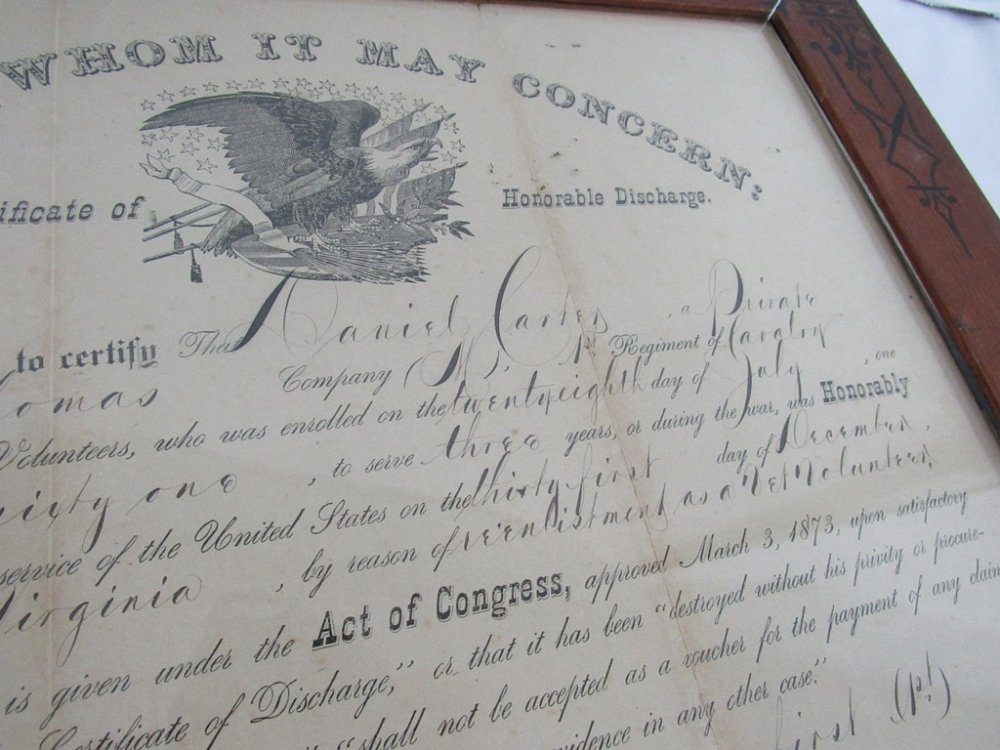 WHOM IT MAY CONCERN:
ificate of Honorable Discharge.
to certify That Daniel Carter a Private
omas Company (M), 1st Regiment of Cavalry
Volunteers, who was enrolled on the twentyeighth day of July, one
ixty one, to serve three years, or during the war, was Honorably
service of the United States on the thirty first day of December,
Virginia, by reason of reenlistment as a Vet Volunteer
is given under the Act of Congress, approved March 3, 1873, upon satisfactory
Certificate of Discharge," or that it has been "destroyed without his privity or procure-
"shall not be accepted as a voucher for the payment of any claim
vidence in any other case."
first (1st)